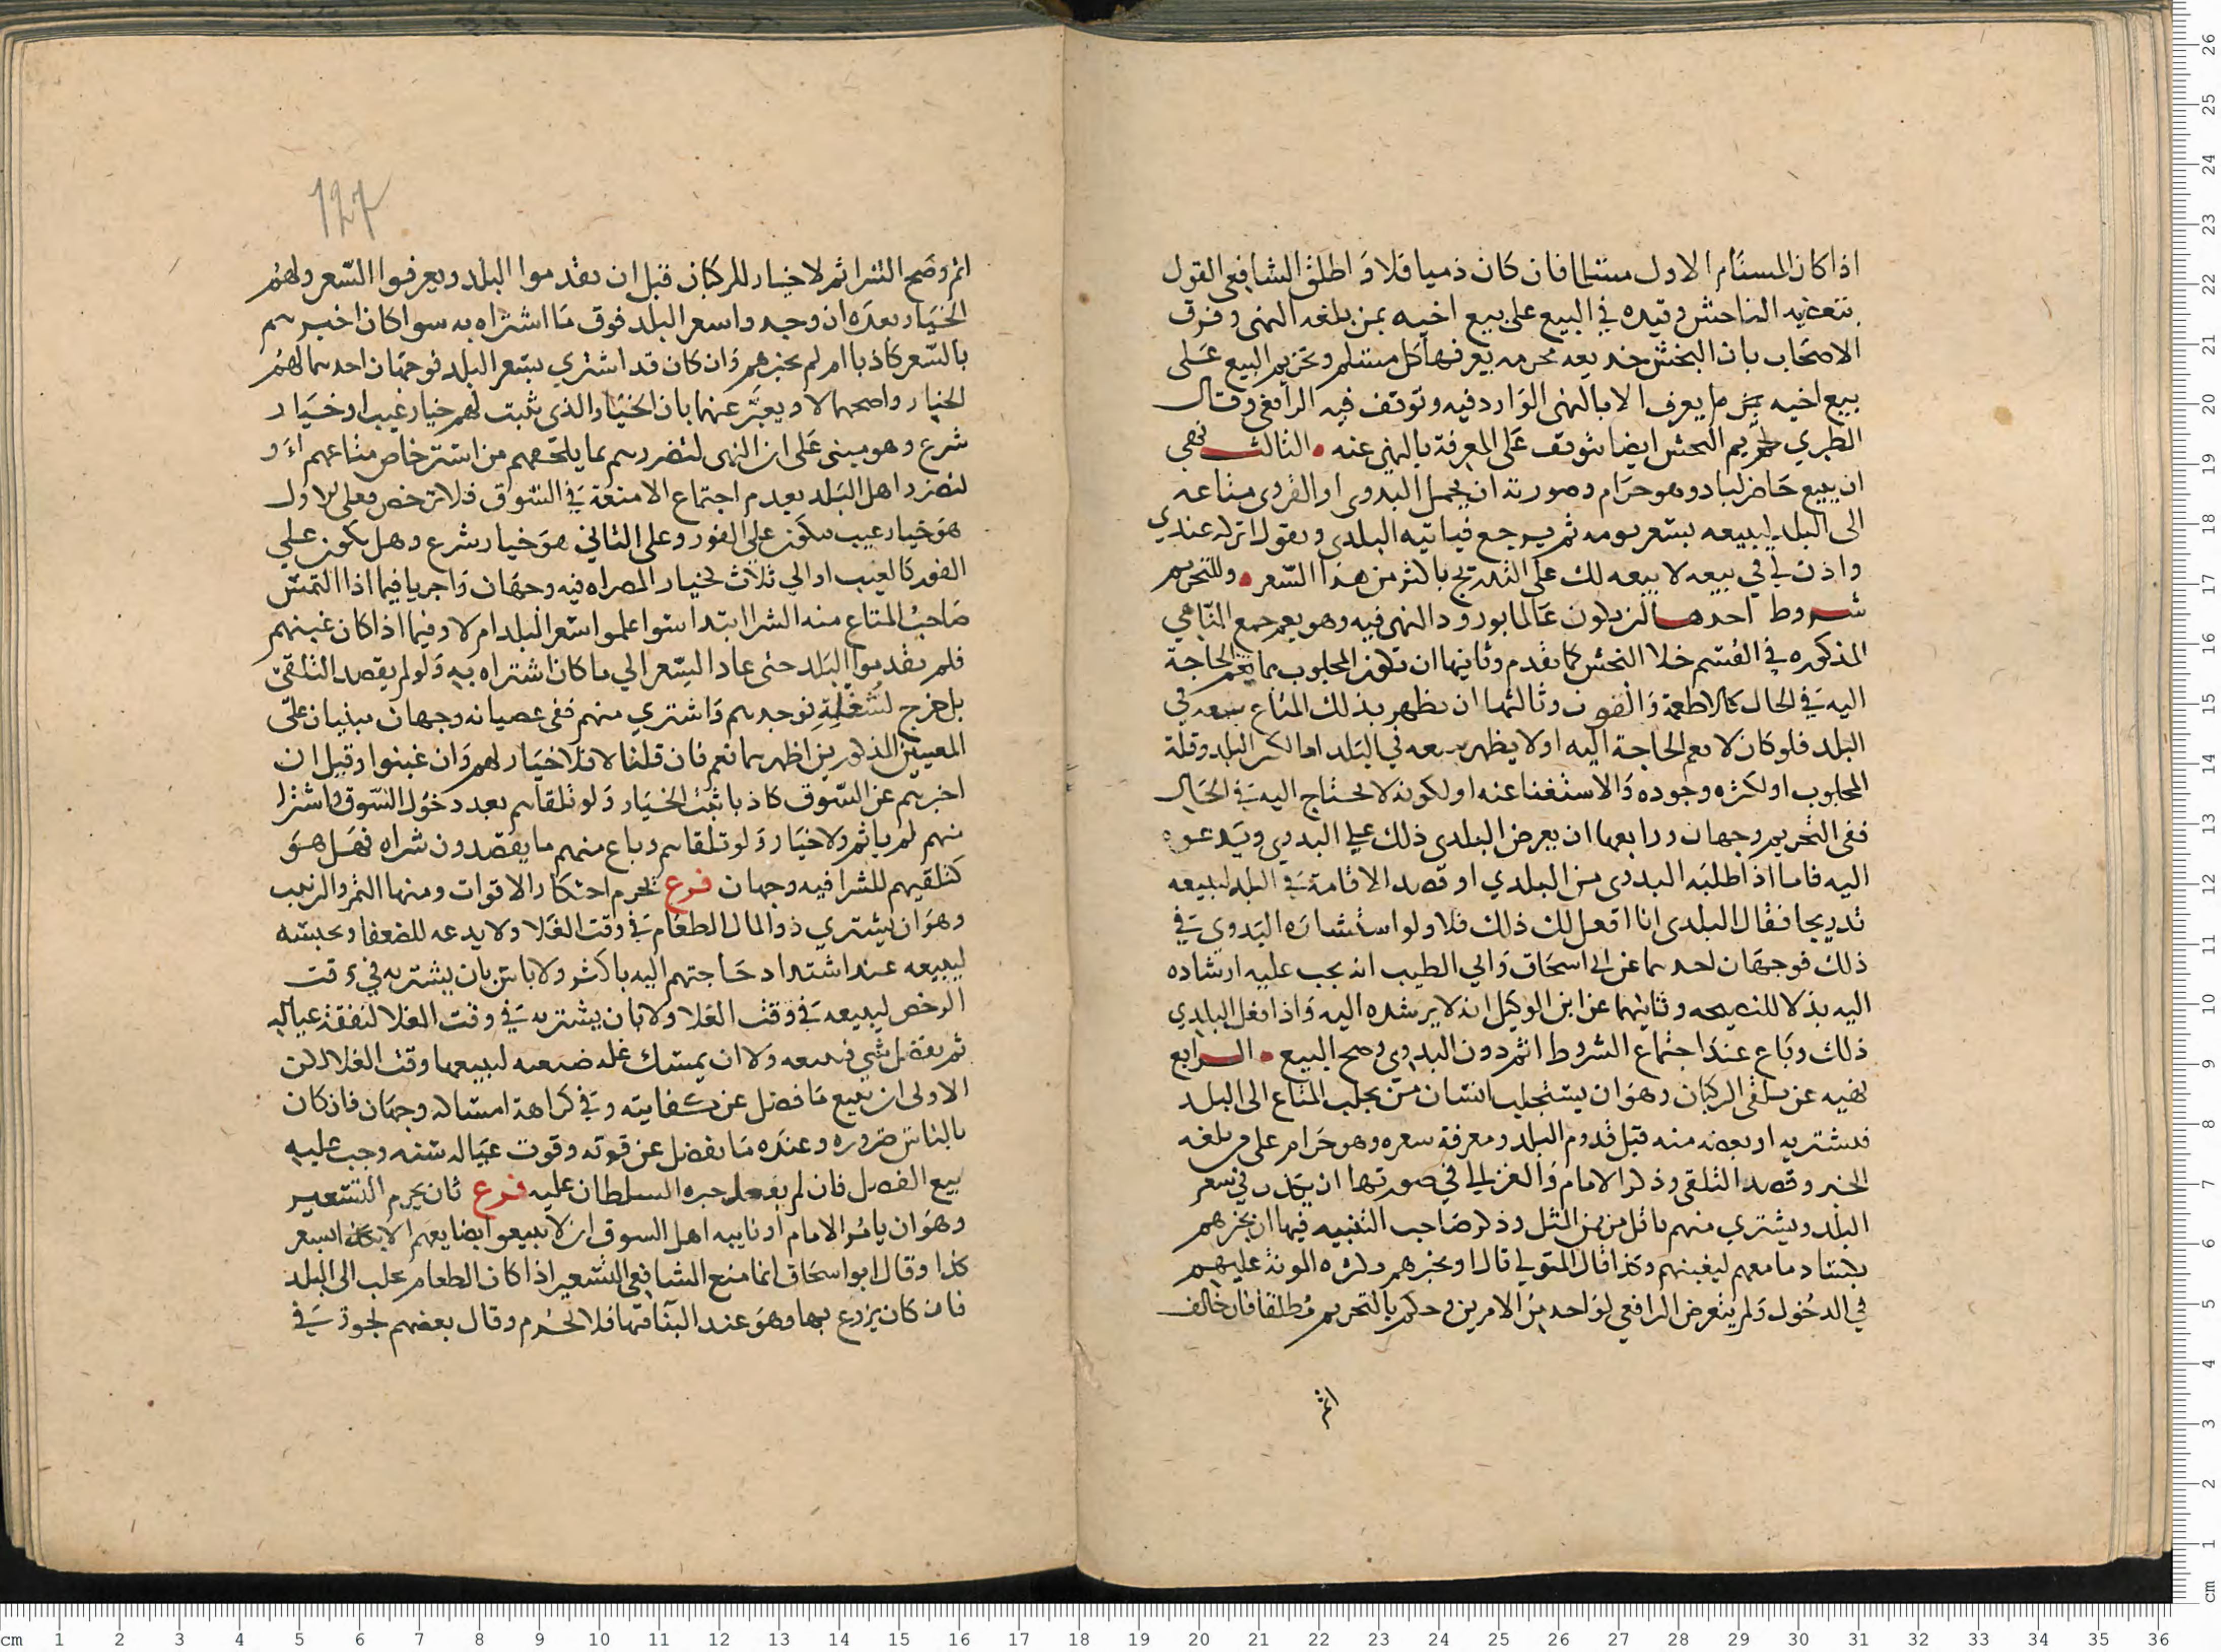 اذا كان المستام الاول مسلما فان كان ذميا فلا و اطلق الشافعي القول
بتعصيه الناجش وقيده في البيع على بيع اخيه بمن بلغه النهى وفرق
الاصحاب بان النجش خديعه محرمه يعرفها كل مسلم وتحريم البيع على
بيع اخيه مما يعرف الا بالنهى الوارد فيه وتوقف فيه الرافعي وقال
الطبري تحريم النجش ايضا يتوقف على المعرفة بالنهى عنه الثالث نهى
ان يبيع حاضر لباد وهو حرام وصورته ان يحمل البدوى او القروى متاعه
الى البلد ليبيعه بسعر يومه ثم يرجع فياتيه البلدى ويقول اتركه عندي
واذن لي في بيعه لا بيعه لك على التدريج باكثر من هذا السعر وللتحريم
شروط احدها ان يكون عالما بورود النهى فيه وهو يعم جمع النواهي
المذكوره في القسم خلا النجش كما تقدم وثانيها ان يكون المجلوب مما يعم الحاجة
اليه في الحال كالاطعمة والقوت وثالثها ان يظهر بذلك المتاع سعه في
البلد فلو كان لا يعم الحاجة اليه او لا يظهر به سعه في البلد اما لكبر البلد وقلة
المجلوب او لكثره وجوده والاستغنا عنه او لكونه لا يحتاج اليه في الحال
ففى التحريم وجهان ورابعها ان يعرض البلدى ذلك على البدوى ويدعوه
اليه فاما اذا طلبه البدوى من البلدي او قصد الاقامة في البلد ليبيعه
تدريجا فقال البلدى انا افعل لك ذلك فلا ولو استشاره البدوي في
ذلك فوجهان احدهما عن ابى اسحاق وابي الطيب انه يجب عليه ارشاده
اليه بذلا للنصيحه وثانيهما عن ابن الوكيل انه لا يرشده اليه واذا فعل البلدي
ذلك وباع عند اجتماع الشروط اثم دون البدوى وصح البيع الرابع
نهيه عن تلقى الركبان وهو ان يستجلب انسان ممن يجلب المتاع الى البلد
فيشتريه او بعضه منه قبل قدوم البلد ومعرفة سعره وهو حرام على من بلغه
الخبر وقصد التلقى وذكر الامام والغزالي في صورتها ان يكذب في سعر
البلد ويشتري منهم باقل من ثمن المثل وذكر صاحب التنبيه فيها ان يخبرهم
بكساد ما معهم ليغبنهم وكذا قال المتولي قال او يخبرهم بكثره المونة عليهم
في الدخول ولم يتعرض الرافعي لواحد من الامرين وحكم بالتحريم مطلقا فان خالف
اثم
127
اثم وصح الشرا ثم لا خيار للركبان قبل ان يقدموا البلد ويعرفوا السعر ولهم
الخيار بعده ان وجدوا سعر البلد فوق ما اشتراه به سوا كان اخبرهم
بالسعر كاذبا ام لم يخبرهم وان كان قد اشتري بسعر البلد فوجهان احدهما لهم
الخيار واصحهما لا ويعبر عنهما بان الخيار الذي يثبت لهم خيار عيب او خيار
شرع وهو مبنى على ان النهى لتضررهم بما يلحقهم من استرخاص متاعهم او
لتضرر اهل البلد بعدم اجتماع الامتعة في السوق فلا ترخص فعلى الاول
هو خيار عيب يكون على الفور وعلى الثاني هو خيار شرع وهل يكون على
الفور كالعيب او الي ثلاث كخيار المصراه فيه وجهان واجريا فيما اذا التمس
صاحب المتاع منه الشرا ابتدا سوا علموا سعر البلد ام لا وفيما اذا كان غبنهم
فلم يقدموا البلد حتى عاد السعر الي ما كان اشتراه به ولو لم يقصد التلقى
بل خرج لشغله فوجدهم واشتري منهم ففى عصيانه وجهان مبنيان على
المعنيين المذكورين اظهرهما نعم فان قلنا لا فلا خيار لهم وان غبنوا وقيل ان
اخبرهم عن السوق كاذبا ثبت الخيار ولو تلقاهم بعد دخول السوق واشترا
منهم لم ياثم ولا خيار ولو تلقاهم وباع منهم ما يقصدون شراه فهل هو
كتلقيهم للشرا فيه وجهان فرع تحرم احتكار الاقوات ومنها التمر والزبيب
وهو ان يشتري ذو المال الطعام في وقت الغلا ولا يدعه للضعفا ويحبسه
ليبيعه عند اشتداد حاجتهم اليه باكثر ولا باس بان يشتريه في وقت
الرخص ليبيعه في وقت الغلا ولا بان يشتريه في وقت الغلا لنفقة عياله
ثم يفضل شي فيبيعه ولا ان يمسك غله ضيعته ليبيعها وقت الغلا لكن
الاولى ان يبيع ما فضل عن كفايته وفي كراهة امساكه وجهان فان كان
بالناس ضروره وعنده ما يفضل عن قوته وقوت عياله سنه وجب عليه
بيع الفضل فان لم يفعل جبره السلطان عليه فرع ثان يحرم التسعير
وهو ان يامر الامام او نايبه اهل السوق ان لا يبيعوا بضايعهم الا بسعر
كذا وقال ابو اسحاق انما منع الشافعي التسعير اذا كان الطعام يجلب الى البلد
فان كان يزرع بها وهو عند اقتنا فيها فلا تحرم وقال بعضهم يجوز في